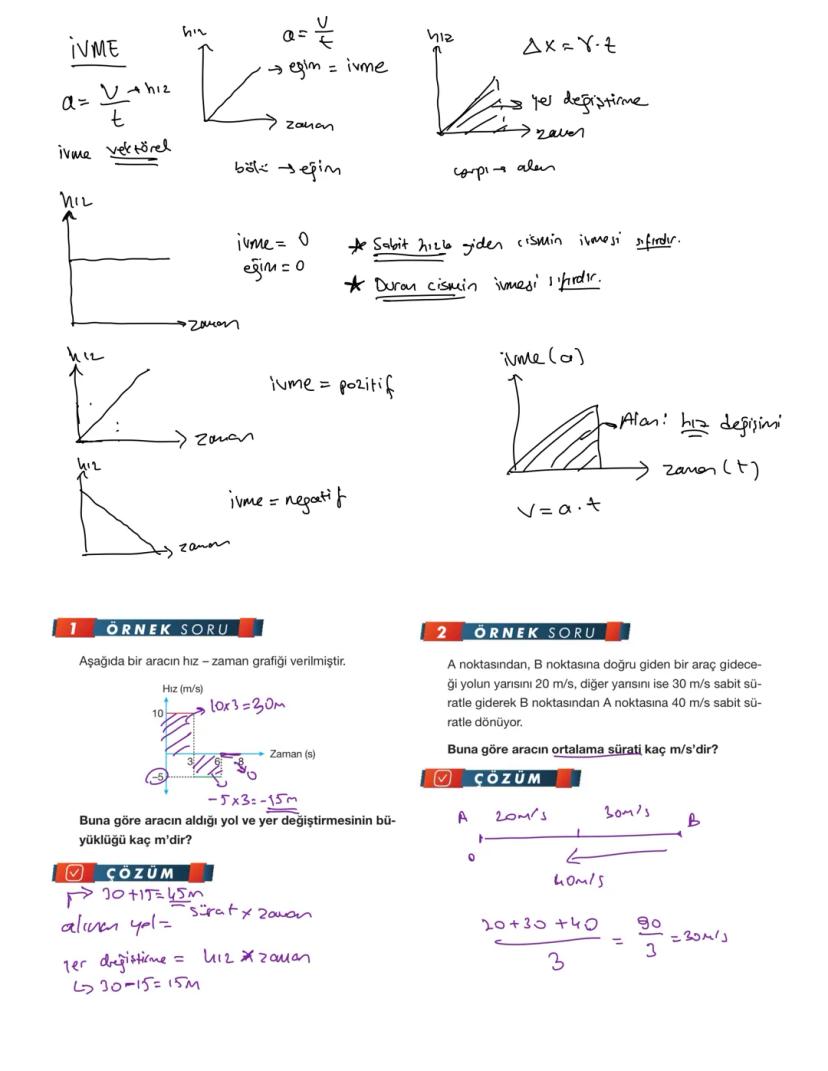 İVME
a = V → hız
t
ivme vektörel
hız
a = V
t
→ eğim = ivme
zaman
bölü → eğim
hız
Δx = V.t
→ yer değiştirme
zaman
çarpı → alan
hız
zaman
ivme = 0
eğim = 0
★ Sabit hızla giden cismin ivmesi sıfırdır.
★ Duran cismin ivmesi sıfırdır.
hız
zaman
ivme = pozitif
hız
zaman
ivme = negatif
ivme (a)
Alan: hız değişimi
zaman (t)
V = a.t
1 ÖRNEK SORU
Aşağıda bir aracın hız – zaman grafiği verilmiştir.
Hız (m/s)
10
10x3=30m
Zaman (s)
3 6 8
0
-5
-5x3=-15m
Buna göre aracın aldığı yol ve yer değiştirmesinin bü-
yüklüğü kaç m'dir?
ÇÖZÜM
→ 30+15=45m
alınan yol = sürat x zaman
yer değiştirme = hız x zaman
↳ 30-15=15m
2 ÖRNEK SORU
A noktasından, B noktasına doğru giden bir araç gidece-
ği yolun yarısını 20 m/s, diğer yarısını ise 30 m/s sabit sü-
ratle giderek B noktasından A noktasına 40 m/s sabit sü-
ratle dönüyor.
Buna göre aracın ortalama sürati kaç m/s'dir?
ÇÖZÜM
A 20m/s 30m/s B
0
40m/s
20+30+40 = 90 = 30m/s
3 3